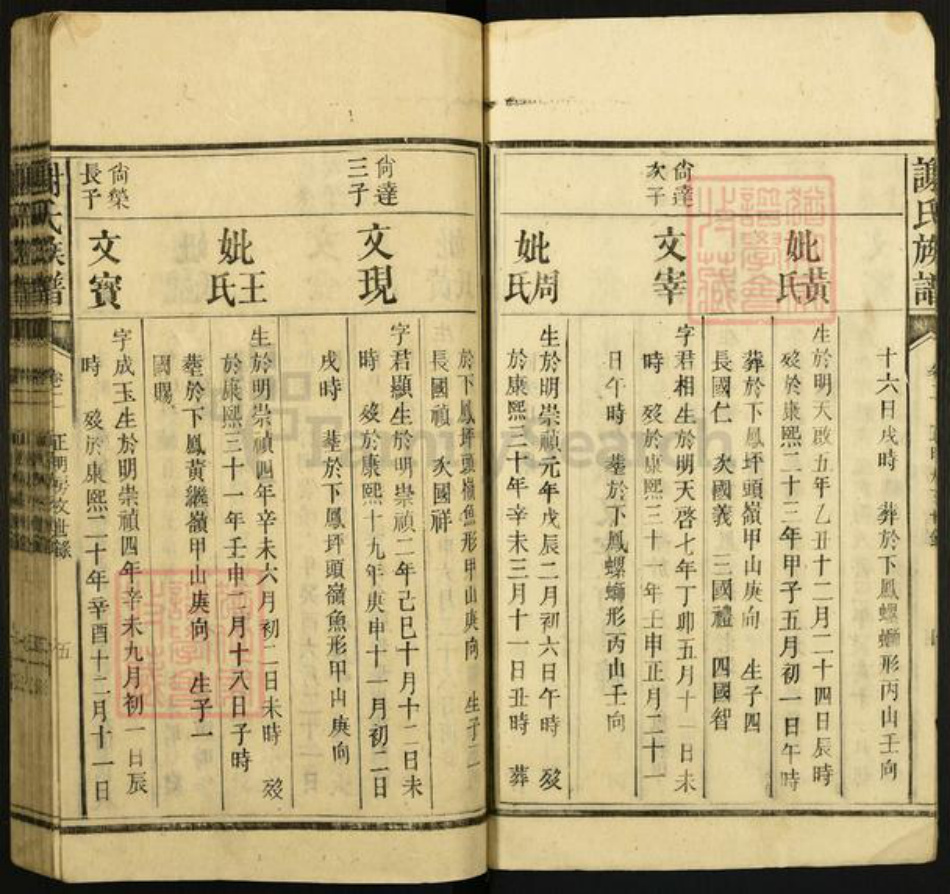 謝氏族譜
十六日戌時 葬於下鳳螺螄形丙山壬向
妣黃氏
生於明天啟五年乙丑十二月二十四日辰時
歿於康熙二十三年甲子五月初一日午時
葬於下鳳坪頭嶺甲山庚向 生子四
長國仁 次國義 三國禮 四國智
尙達次子
文宰
字君相生於明天啓七年丁卯五月十一日未
時 歿於康熙三十一年壬申正月二十一
日午時 塟於下鳳螺螄形丙山壬向
妣周氏
生於明崇禎元年戊辰二月初六日午時 歿
於康熙三十年辛未三月十一日丑時 葬
於下鳳坪頭嶺魚形甲山庚向 生子二
長國禎 次國祥
尙達三子
文現
字君顯生於明崇禎二年己巳十月十二日未
時 歿於康熙十九年庚申十一月初二日
戌時 塟於下鳳坪頭嶺魚形甲山庚向
妣王氏
生於明崇禎四年辛未六月初二日未時 歿
於康熙三十一年壬申二月十八日子時
塟於下鳳黃繼嶺甲山庚向 生子一
國賜
尙榮長子
文寶
字成玉生於明崇禎四年辛未九月初一日辰
時 歿於康熙二十年辛酉十二月十一日
謝氏族譜 卷二 正明房文世錄 五